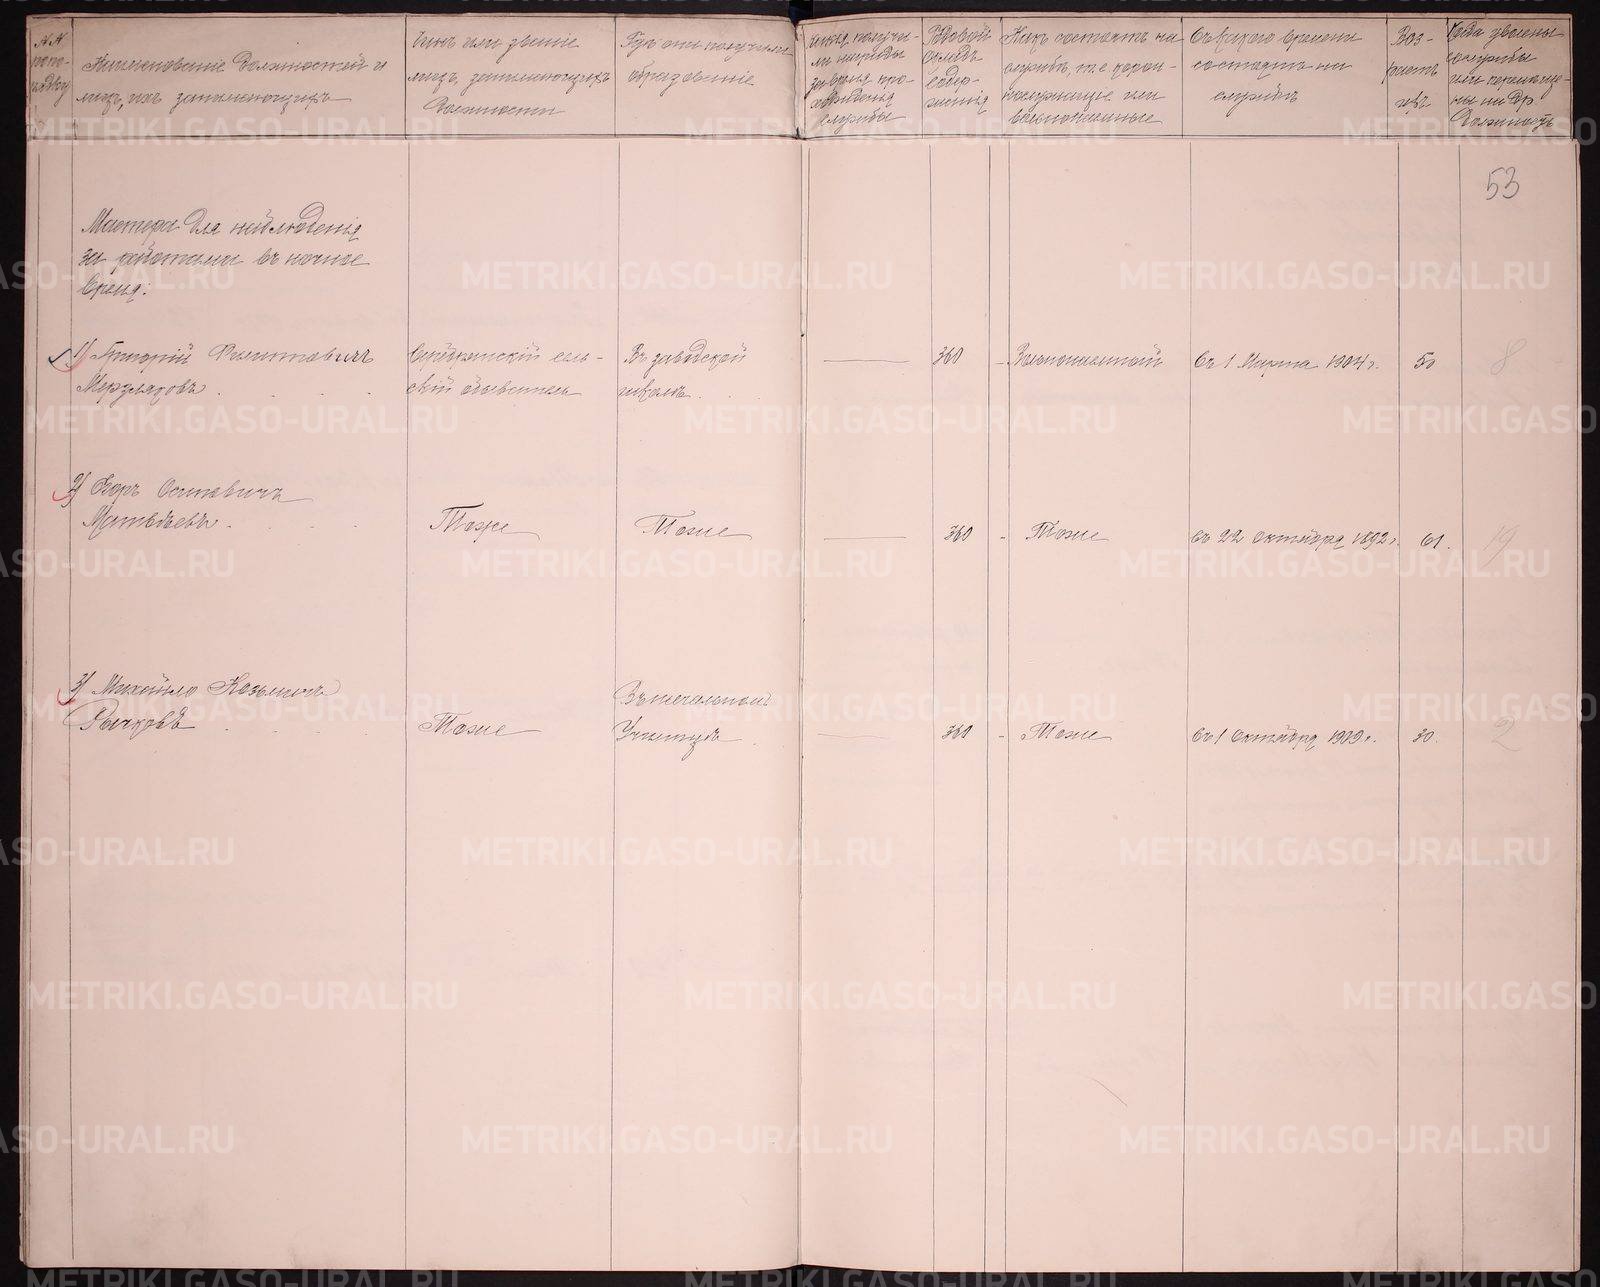 № №
по по-
рядку
Наименованіе должностей и
лицъ, ихъ занимающихъ
Чинъ или званіе
лицъ, занимающихъ
должности
Гдѣ они получили
образованіе
Какія получи-
ли награды
за время про-
хожденія
службы
Годовой
окладъ
содер-
жанія
Какъ состоятъ на
службѣ, т. е. корон-
нослужащіе или
вольнонаемные
Съ какого времени
состоятъ на
службѣ
Воз-
растъ
ихъ
Когда уволены
службы
или перемѣще-
ны на др.
должность
53
Мастера для наблюденія
за работами въ ночное
время:
1) Григорій Филиповичъ
Мерзляковъ
Серебрянскій сель-
скій обыватель
Въ заводской
школѣ
360
Вольнонаемный
Съ 1 Марта 1904 г.
50
8
2) Егоръ Осиповичъ
Матвѣевъ
Тоже
Тоже
360
Тоже
Съ 22 Октября 1892 г.
61.
19
3) Михайло Козьмичъ
Рычковъ
Тоже
Въ начальномъ
Училищѣ
360
Тоже
Съ 1 Октября 1909 г.
30.
2
METRIKI.GASO-URAL.RU